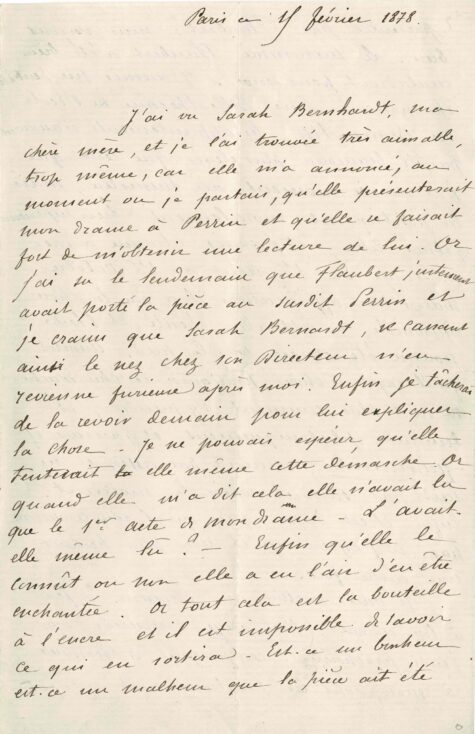 Paris ce 15 février 1878.
J'ai vu Sarah Bernhardt, ma
chère mère, et je l'ai trouvée très aimable,
trop même, car elle m'a annoncé, au
moment ou je partais, qu'elle présenterait
mon drame à Perrin et qu'elle se faisait
fort de m'obtenir une lecture de lui. Or
j'ai su le lendemain que Flaubert justement
avait porté la pièce au susdit Perrin et
je crains que Sarah Bernardt, se cassant
ainsi le nez chez son Directeur n'en
revienne furieuse après moi. Enfin je tâcherai
de la revoir demain pour lui expliquer
la chose. Je ne pouvais espérer qu'elle
tenterait elle même cette démarche. Or
quand elle m'a dit cela elle n'avait lu
que le 1er acte de mon drame - L'avait-
elle même lu? - Enfin qu'elle le
connût ou non elle a eu l'air d'en être
enchantée. Or tout cela est la bouteille
à l'encre et il est impossible de savoir
ce qui en sortira. Est-ce un bonheur
est-ce un malheur que la pièce ait été